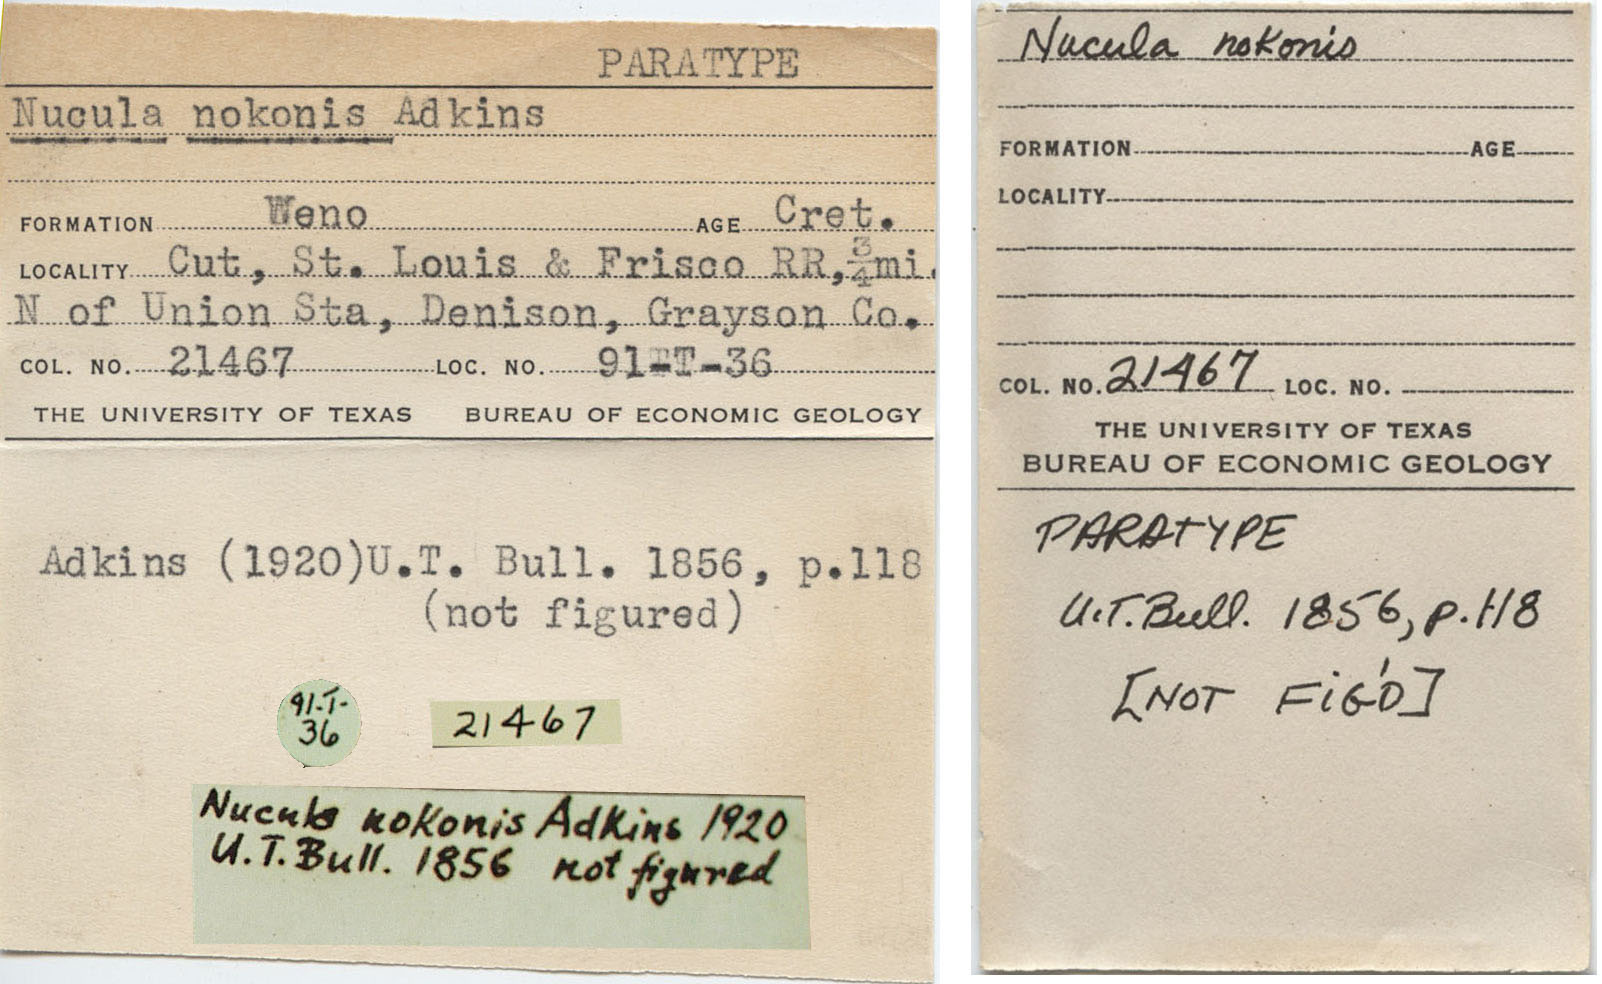 PARATYPE
Nucula nokonis Adkins
FORMATION Weno AGE Cret.
LOCALITY Cut, St. Louis & Frisco RR, 3/4 mi.
N of Union Sta, Denison, Grayson Co.
COL. NO. 21467 LOC. NO. 91-T-36
THE UNIVERSITY OF TEXAS BUREAU OF ECONOMIC GEOLOGY
Adkins (1920)U.T. Bull. 1856, p.118
(not figured)
91-T-
36
21467
Nucula nokonis Adkins 1920
U.T. Bull. 1856 not figured
Nucula nokonis
FORMATION AGE
LOCALITY
COL. NO. 21467 LOC. NO.
THE UNIVERSITY OF TEXAS
BUREAU OF ECONOMIC GEOLOGY
PARATYPE
U.T. Bull. 1856, p. 118
[NOT FIG'D]